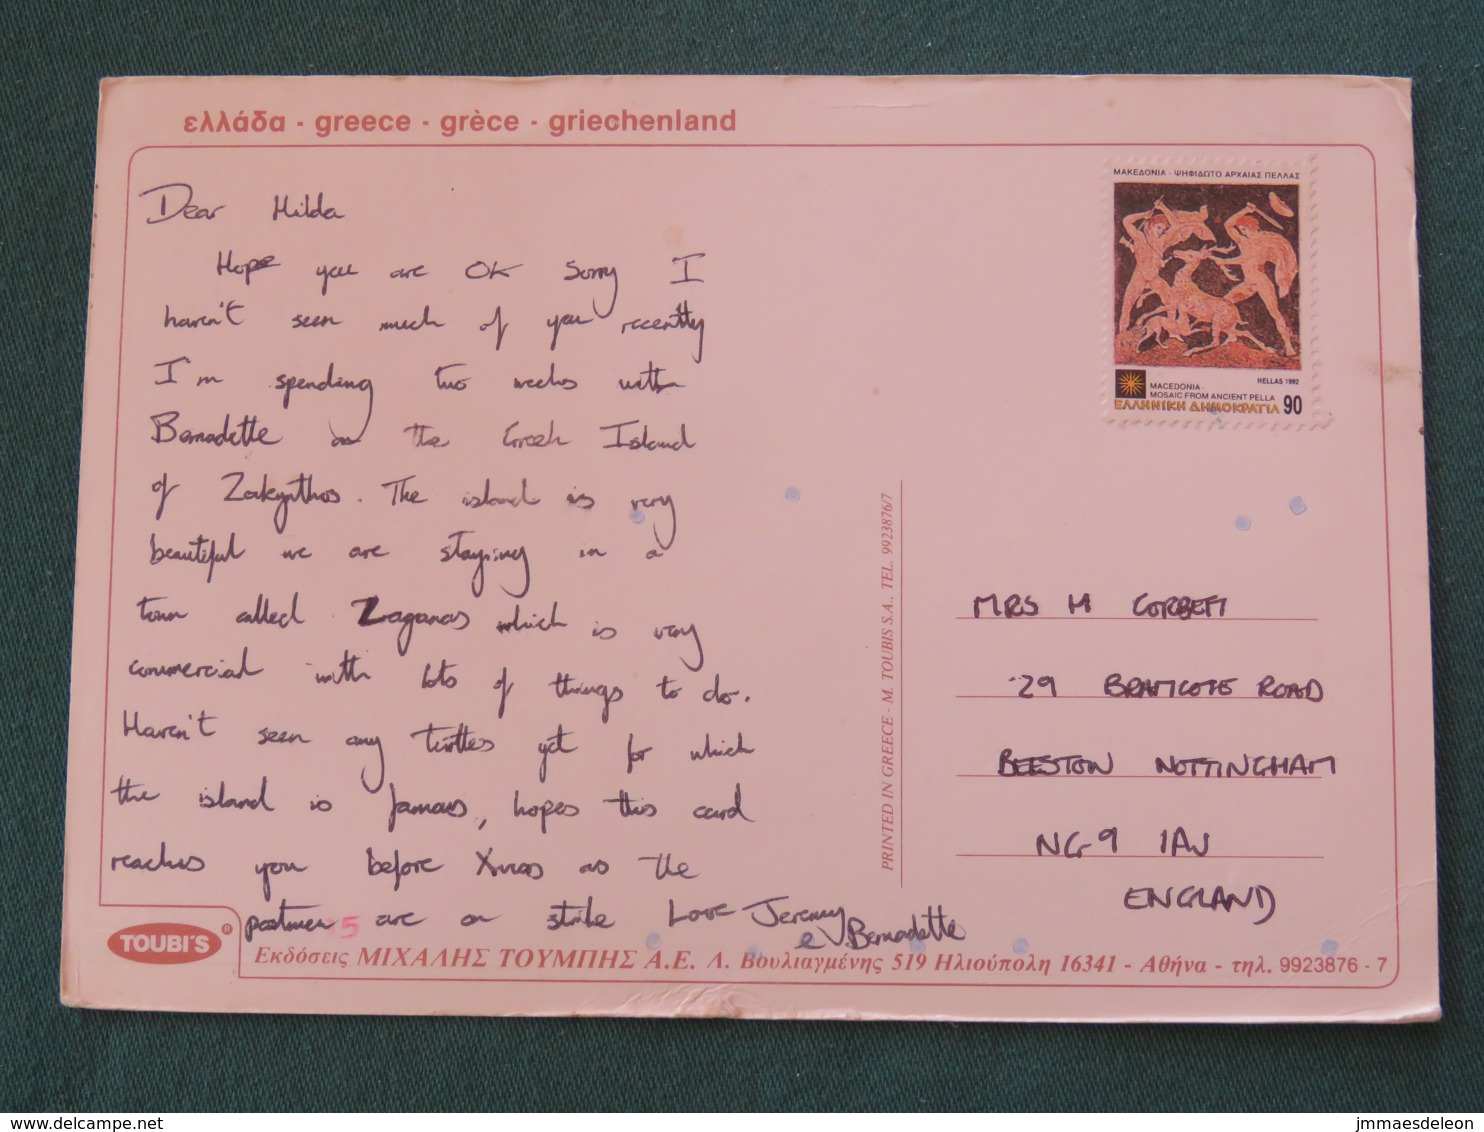 ελλάδα - greece - grèce - griechenland
Dear Hilda
Hope you are OK Sorry I
haven't seen much of you recently
I'm spending two weeks with
Bernadette on the Greek Island
of Zakynthos. The island is very
beautiful we are staying in a
town called Laganas which is very
commercial with lots of things to do.
Haven't seen any turtles yet for which
the island is famous, hopes this card
reaches you before Xmas as the
postmen are on strike Love Jeremy
& Bernadette
ΜΑΚΕΔΟΝΙΑ - ΨΗΦΙΔΩΤΟ ΑΡΧΑΙΑΣ ΠΕΛΛΑΣ
HELLAS 1992
MACEDONIA -
MOSAIC FROM ANCIENT PELLA
ΕΛΛΗΝΙΚΗ ΔΗΜΟΚΡΑΤΙΑ 90
PRINTED IN GREECE - M. TOUBIS S.A., TEL. 9923876/7
MRS H CORBETT
29 BRAMCOTE ROAD
BEESTON NOTTINGHAM
NG9 1AJ
ENGLAND
5
TOUBI'S ®
Εκδόσεις ΜΙΧΑΛΗΣ ΤΟΥΜΠΗΣ Α.Ε. Λ. Βουλιαγμένης 519 Ηλιούπολη 16341 - Αθήνα - τηλ. 9923876 - 7
delcampe.net
jmmaesdeleon